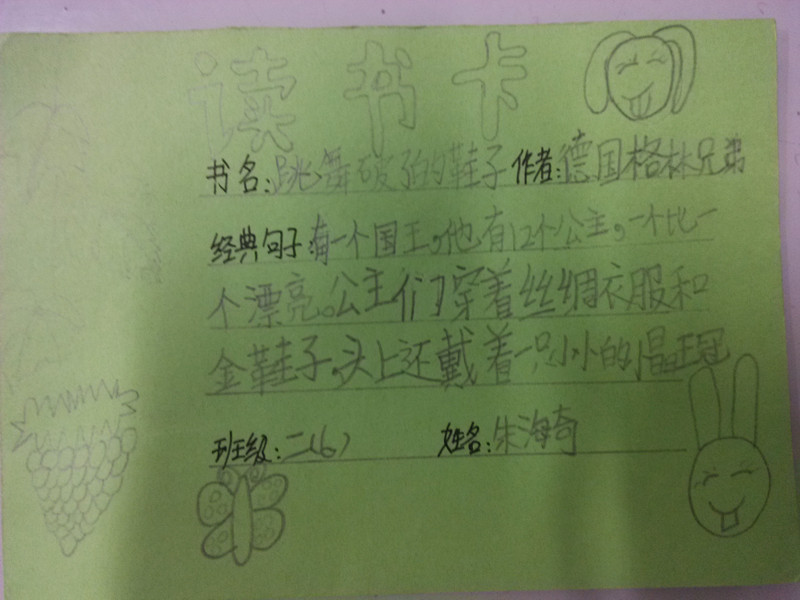 读书卡
书名:跳舞破了的鞋子 作者:德国格林兄弟
经典句子:有一个国王。他有12个公主。一个比一
个漂亮。公主们穿着丝绸衣服和
金鞋子,头上还戴着一只小小的皇冠
班级:二(6) 姓名:朱海奇